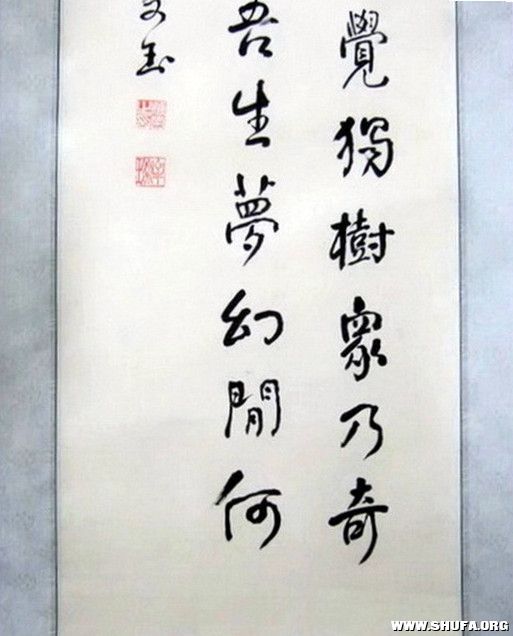 覺獨樹眾乃奇
吾生夢幻閒何
WWW.SHUFA.ORG